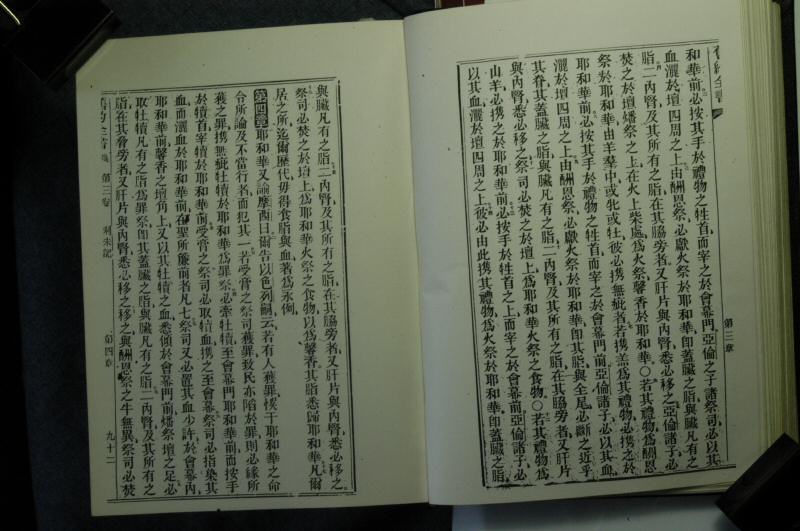 舊約全書
第三章
和華前必按其手於禮物之牲首而宰之於會幕門亞倫之子諸祭司必以其
血灑於壇四周之上由酬恩祭必獻火祭於耶和華卽蓋臟之脂與臟凡有之
脂二內腎及其所有之脂在其脇旁者又肝片與內腎悉必移之亞倫諸子必
焚之於壇燔祭之上在火上柴處爲火祭馨香於耶和華○若其禮物爲酬恩
祭於耶和華由羊羣中或牝或牡彼必携無疵者若携羔爲其禮物必携之於
耶和華前必按其手於禮物之牲首而宰之於會幕門前亞倫諸子必以其血
灑於壇四周之上由酬恩祭必獻火祭於耶和華卽其脂與全尾必斷之近乎
其脊其蓋臟之脂與臟凡有之脂二內腎及其所有之脂在其脇旁者又肝片
與內腎悉必移之祭司必焚之於壇上爲耶和華火祭之食物○若其禮物爲
山羊必携之於耶和華前必按手於牲首之上而宰之於會幕前亞倫諸子必
以其血灑於壇四周之上彼必由此携其禮物爲火祭於耶和華卽蓋臟之脂
與臟凡有之脂二內腎及其所有之脂在其脇旁者又肝片與內腎悉必移之
祭司必焚之於壇上爲耶和華火祭之食物以爲馨香其脂悉歸耶和華凡爾
居之所迄爾歷代毋得食脂與血著爲永例
第四章 耶和華又諭摩西曰爾告以色列嗣云若有人獲罪悞干耶和華之命
令所論及不當行者而犯其一若受膏之祭司獲罪致民亦陷於罪則必緣所
獲之罪携無疵牡犢於耶和華爲罪祭必牽牡犢至會幕門耶和華前而按手
於犢首宰犢於耶和華前受膏之祭司必取犢血携之至會幕祭司必指染其
血而灑血於耶和華前在聖所簾前者凡七祭司又必置其血少許於會幕內
耶和華前馨香之壇角上又以其牡犢之血悉傾於會幕門前燔祭壇之足必
取牡犢凡有之脂爲罪祭卽其蓋臟之脂與臟凡有之脂二內腎及其所有之
脂在其脅旁者又肝片與內腎悉必移之移之與酬恩祭之牛無異祭司必焚
第三卷 利未記 第四章 九十二